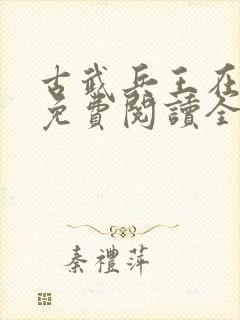 古武兵王在
免費閱讀全
秦禮萍